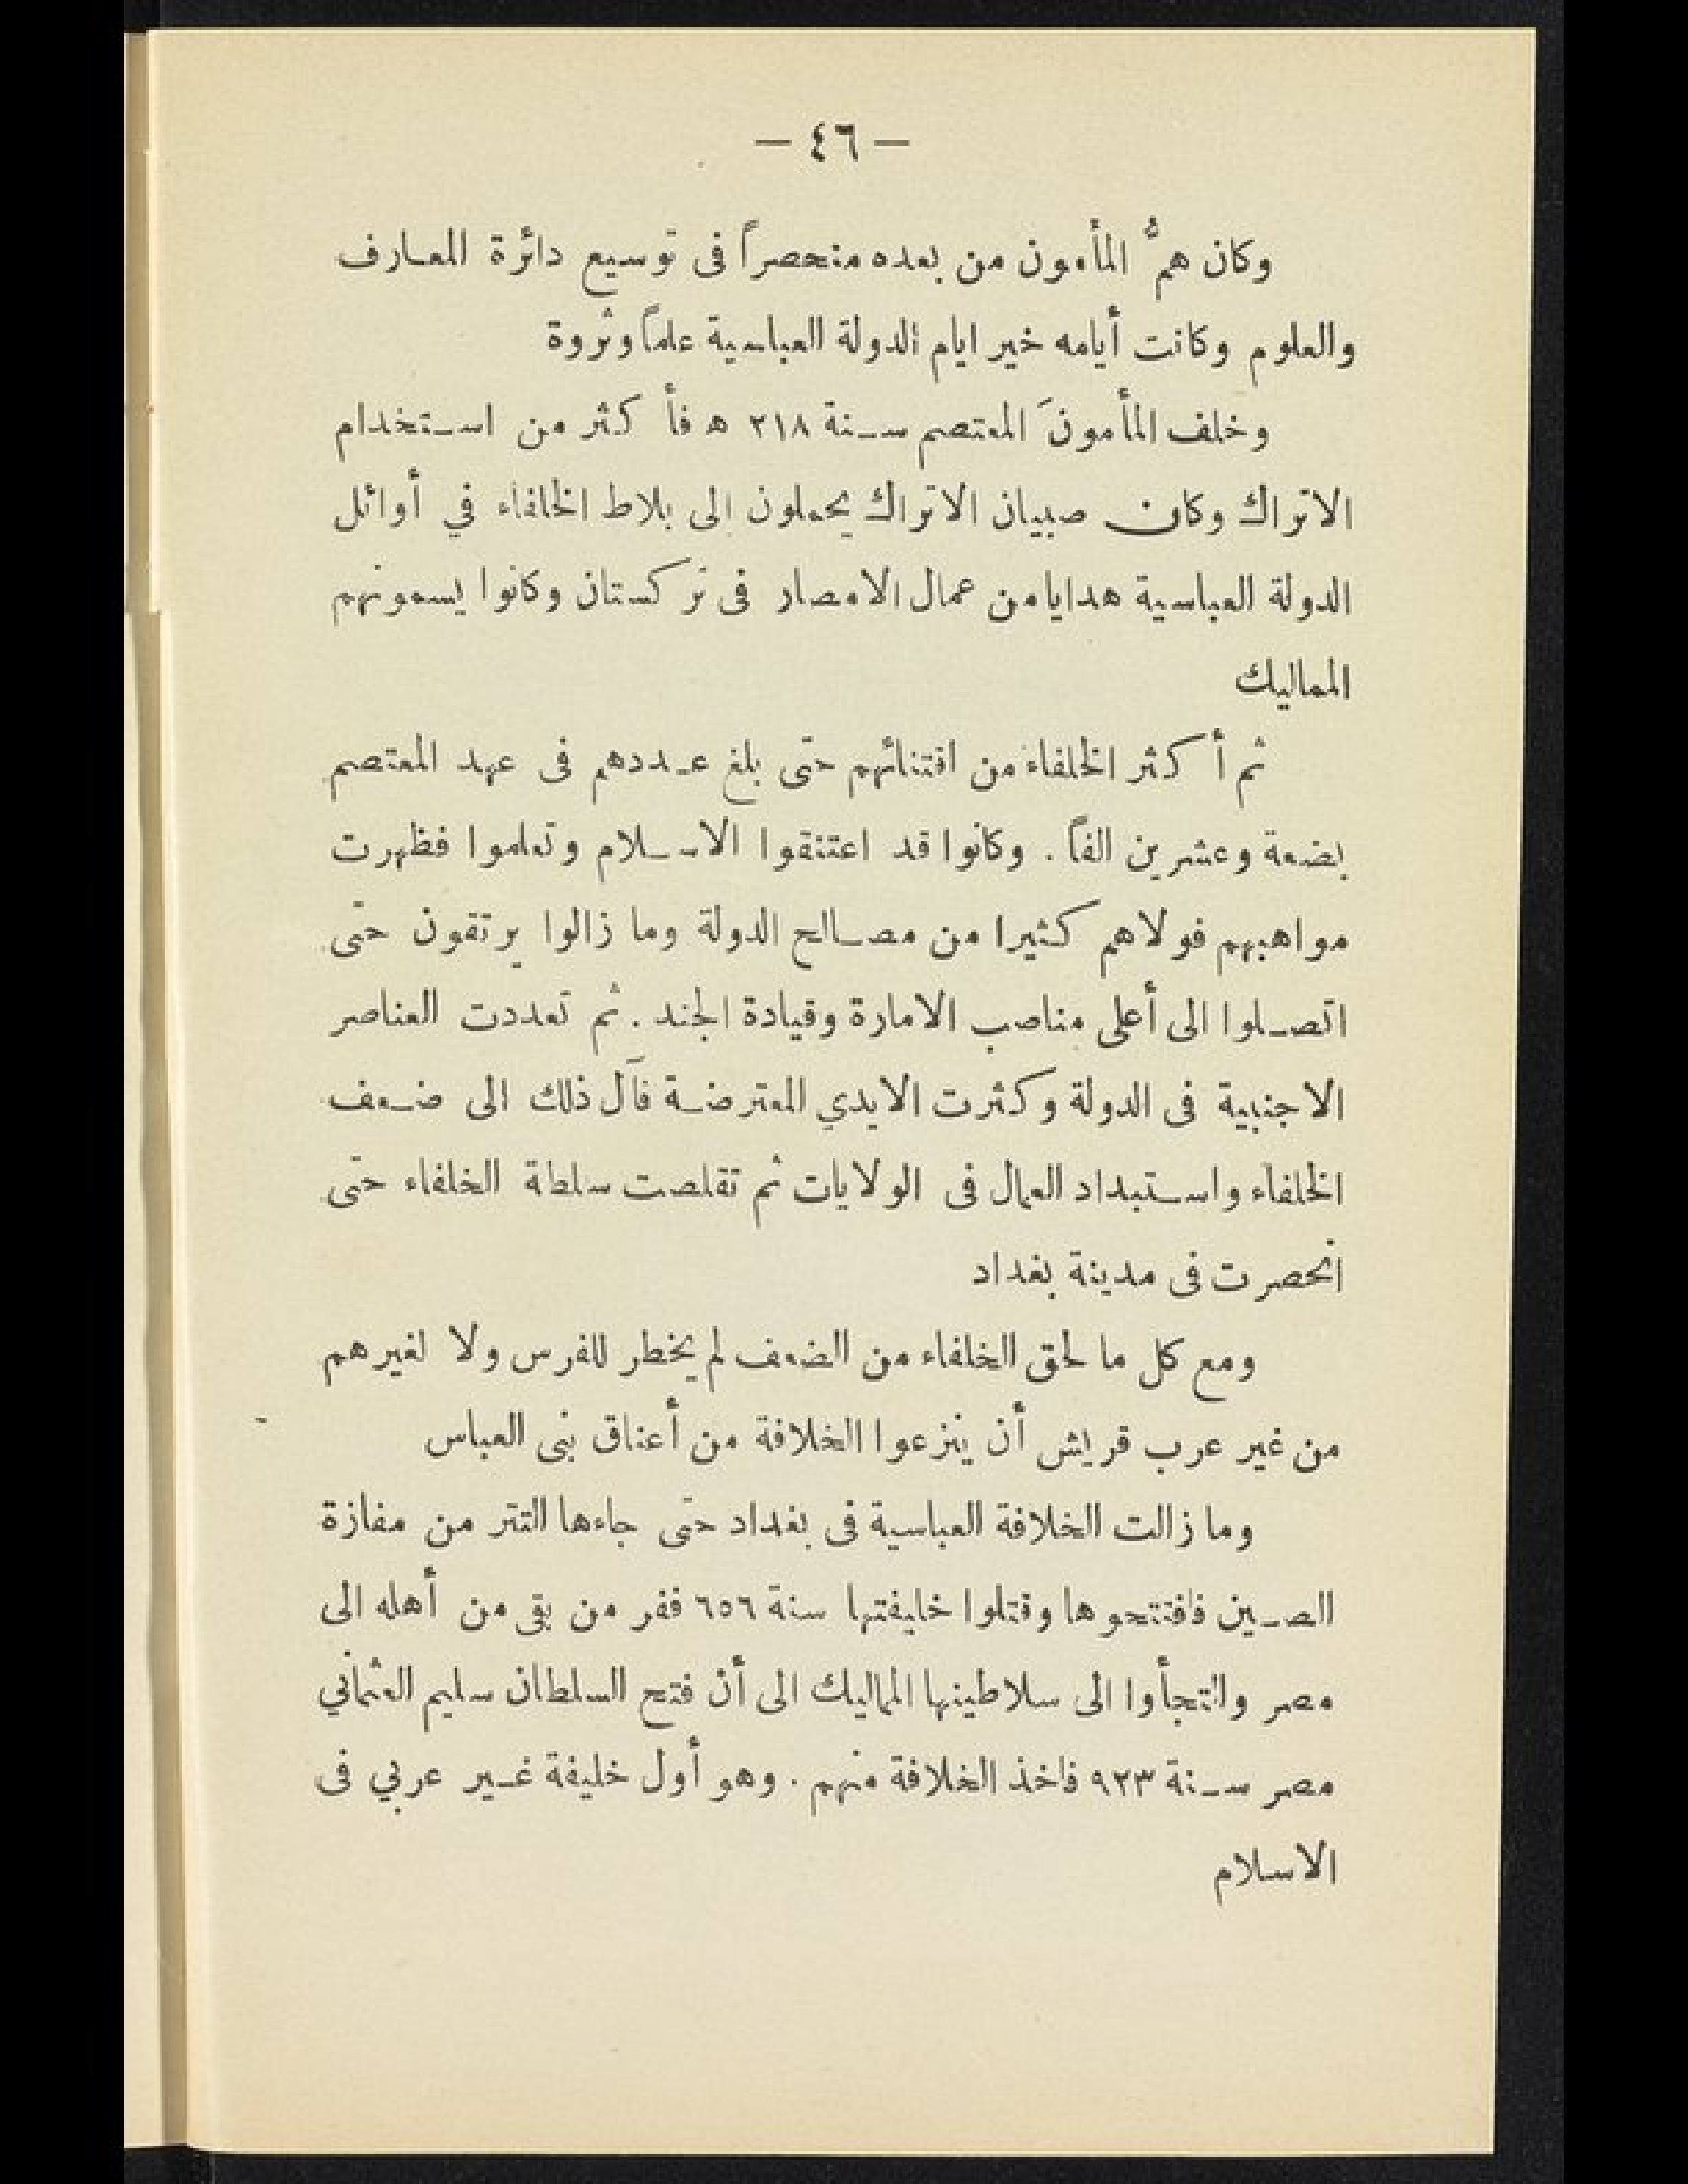 — ٤٦ —
وكان همُّ المأمون من بعده منحصراً فى توسيع دائرة المعارف
والعلوم وكانت أيامه خير ايام الدولة العباسية علماً وثروة
وخلف المأمونَ المعتصم سنة ٢١٨ ه فأكثر من استخدام
الاتراك وكان صبيان الاتراك يحملون إلى بلاط الخلفاء في أوائل
الدولة العباسية هدايا من عمال الامصار فى تركستان وكانوا يسمونهم
المماليك
ثم أكثر الخلفاء من اقتنائهم حتى بلغ عددهم فى عهد المعتصم
بضعة وعشرين الفاً . وكانوا قد اعتنقوا الاسلام وتعلموا فظهرت
مواهبهم فولاهم كثيرا من مصالح الدولة وما زالوا يرتقون حتى
اتصلوا الى أعلى مناصب الامارة وقيادة الجند . ثم تعددت العناصر
الاجنبية فى الدولة وكثرت الايدي المعترضة فآل ذلك الى ضعف
الخلفاء واستبداد العمال فى الولايات ثم تقلصت سلطة الخلفاء حتى
انحصرت فى مدينة بغداد
ومع كل ما لحق الخلفاء من الضعف لم يخطر للفرس ولا لغيرهم
من غير عرب قريش أن ينزعوا الخلافة من أعناق بنى العباس
وما زالت الخلافة العباسية فى بغداد حتى جاءها التتر من مفازة
الصين فافتتحوها وقتلوا خليفتها سنة ٦٥٦ ففر من بقى من أهله الى
مصر والتجأوا الى سلاطينها المماليك الى أن فتح السلطان سليم العثماني
مصر سنة ٩٢٣ فاخذ الخلافة منهم . وهو أول خليفة غير عربي فى
الاسلام